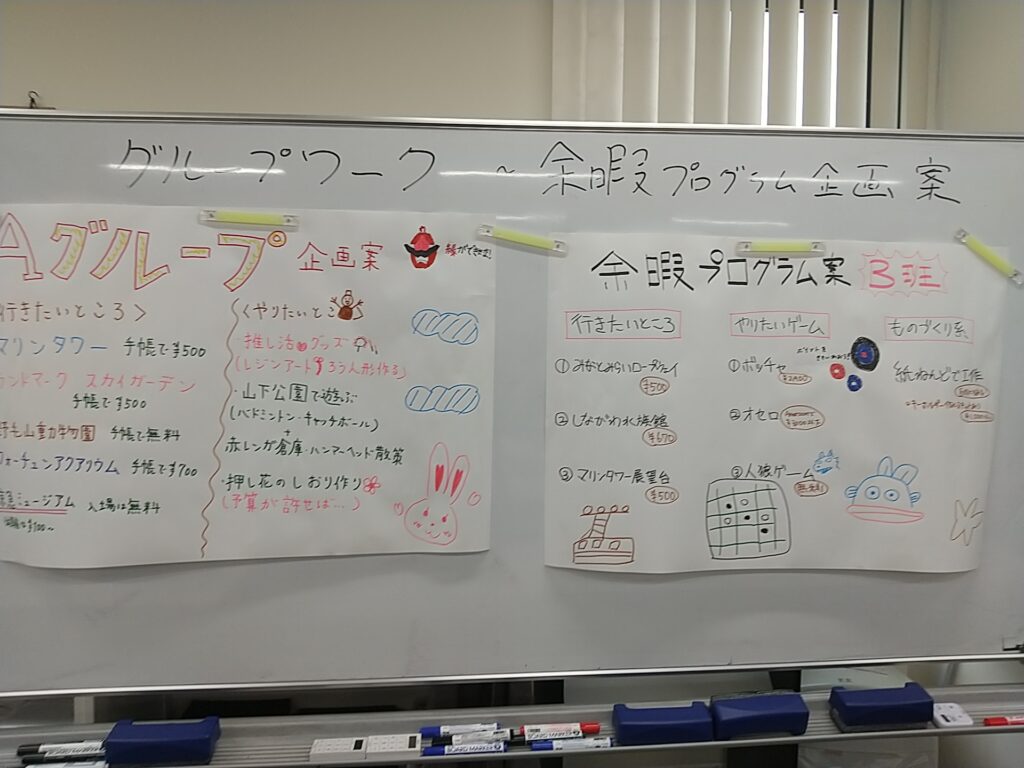 グループワーク ～余暇プログラム企画案
Aグループ 企画案
行きたいところ〉
マリンタワー 手帳で¥500
ランドマーク スカイガーデン
手帳で¥500
野毛山動物園 手帳で無料
フォーチュンアクアリウム 手帳で¥700
ミュージアム 入場は無料
〈やりたいこと
推し活グッズ
(レジンアート ろう人形作る)
・山下公園で遊ぶ
(バドミントン・キャッチボール)
+
赤レンガ倉庫・ハンマーヘッド散策
・押し花のしおり作り
(予算が許せば…)
余暇プログラム案 B班
行きたいところ
①みなとみらいロープウェイ
¥500
②しながわ水族館
¥670
③マリンタワー展望台
¥500
やりたいゲーム
①ボッチャ
②オセロ
③人狼ゲーム
無料
ものづくり系
紙ねんどで工作
BOARD MARKER
BOARD MARKER